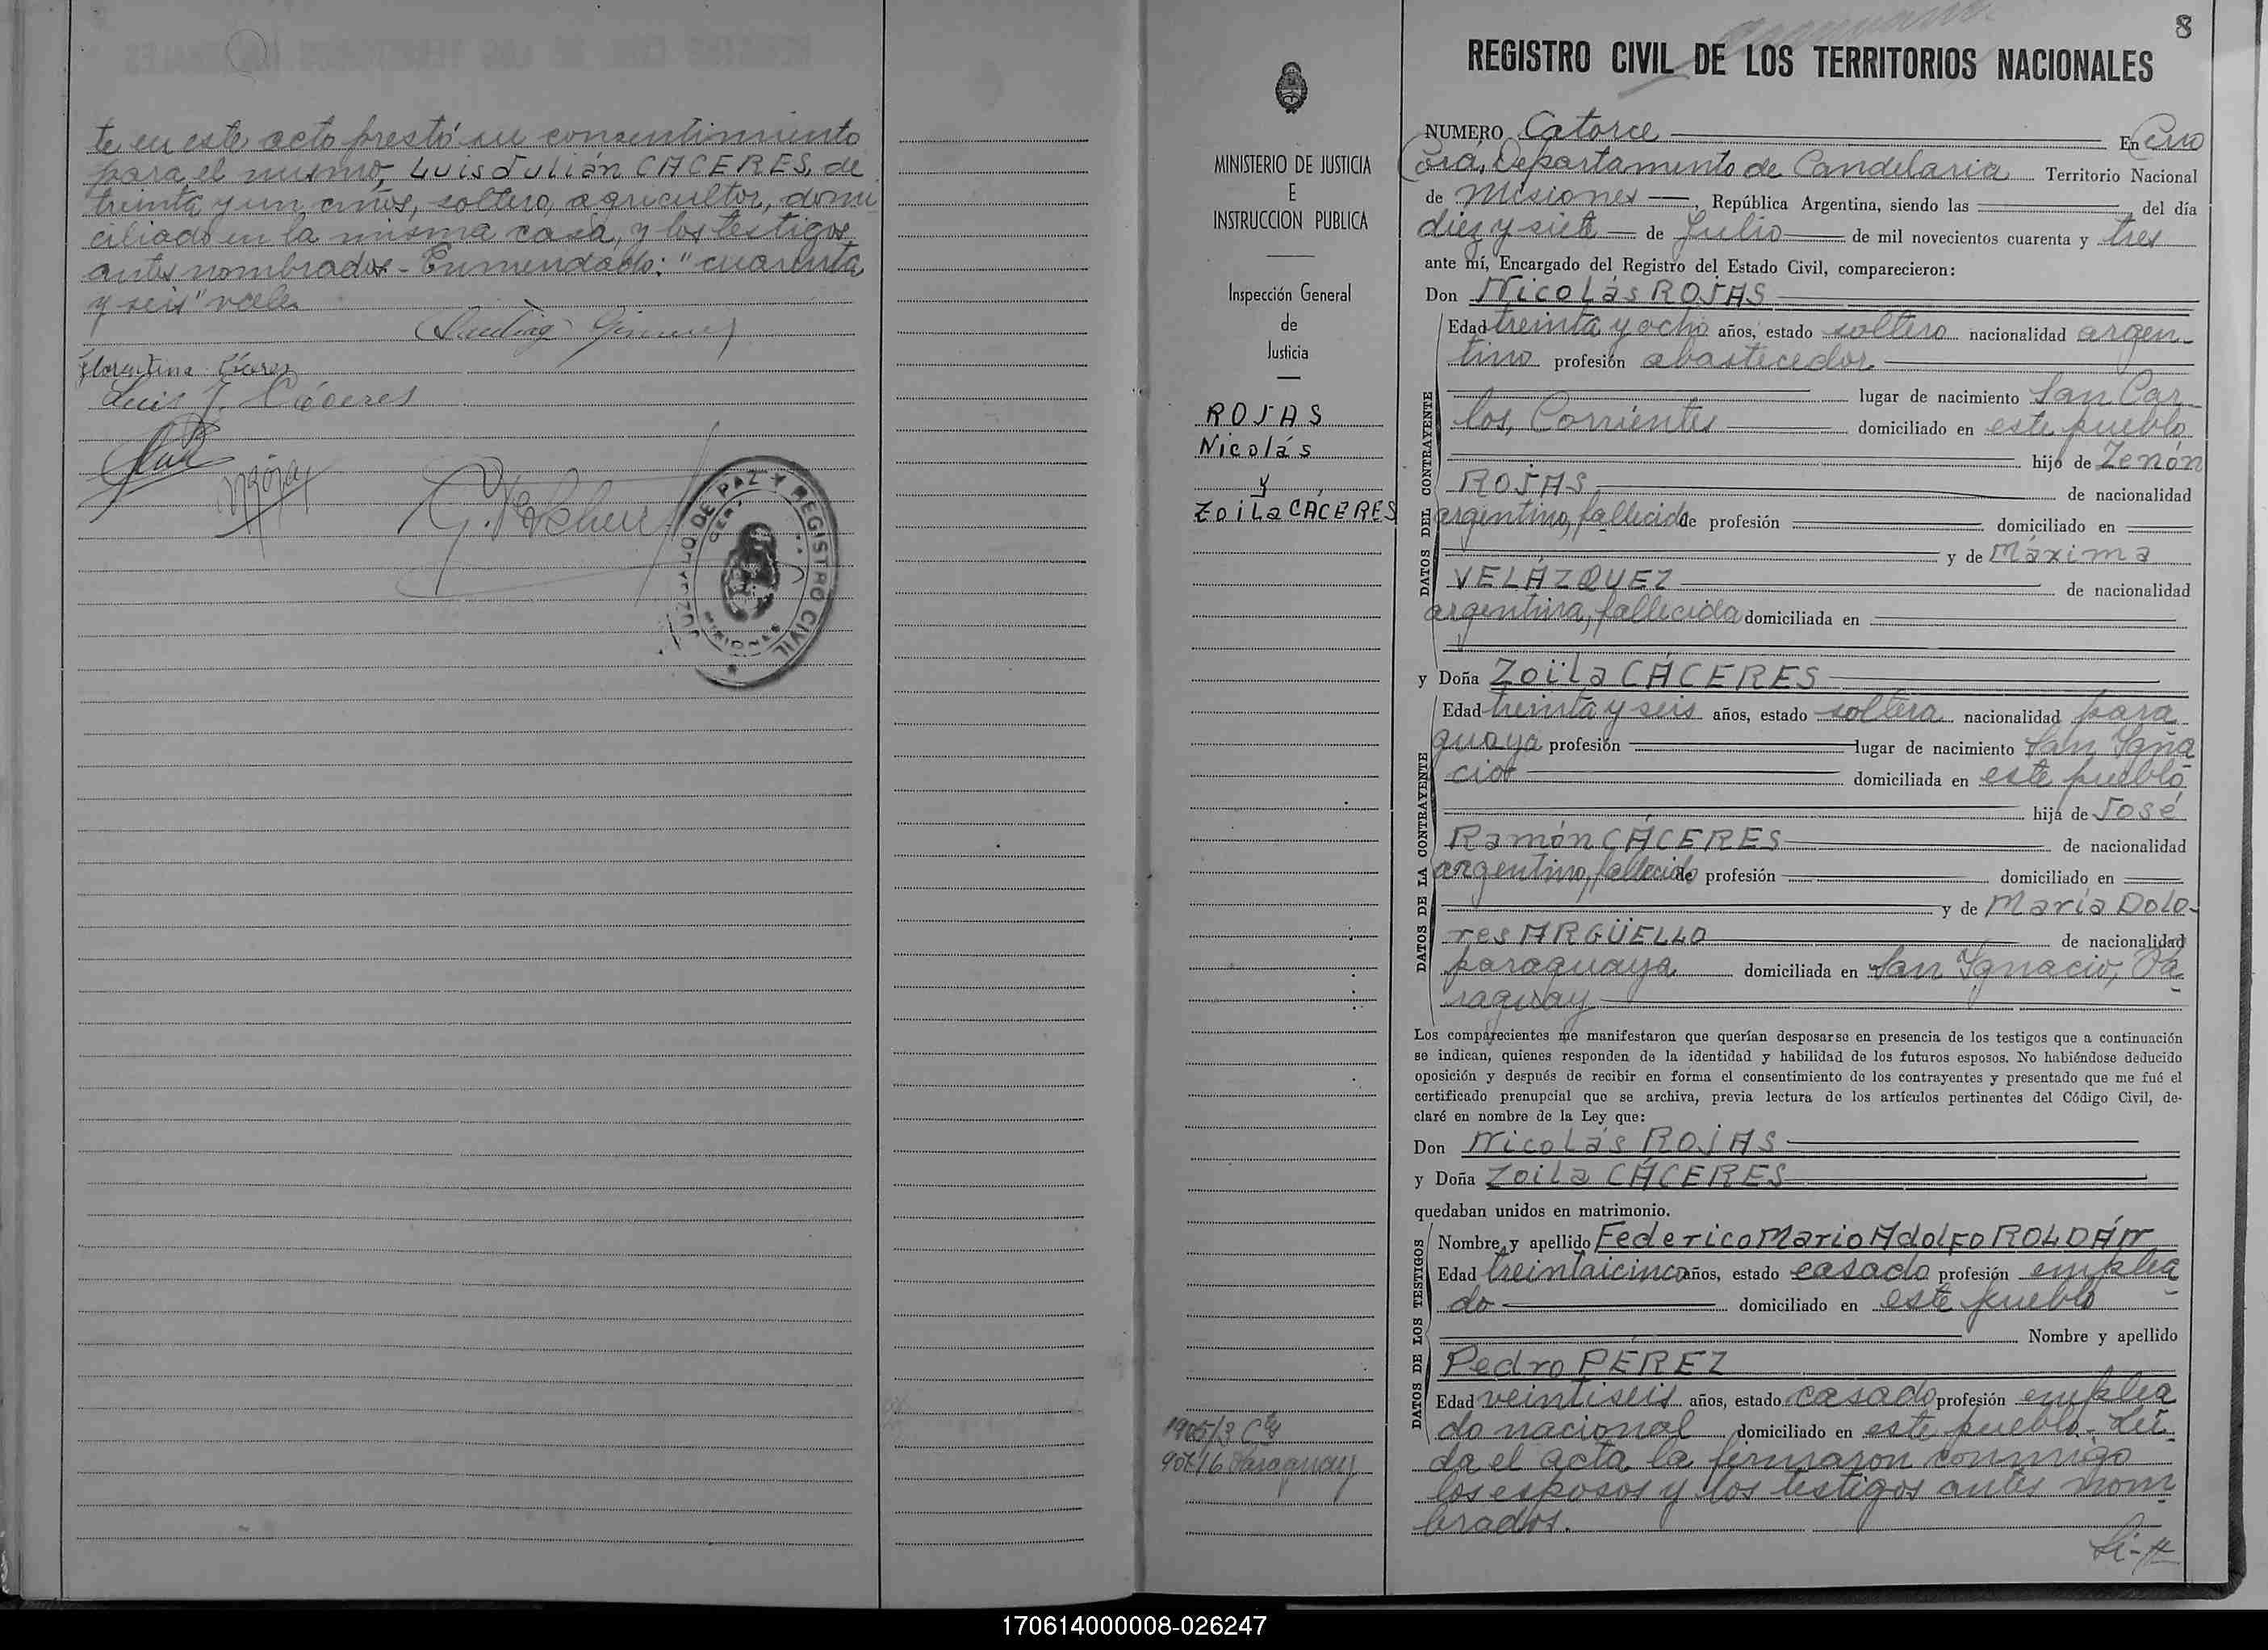 te en este acto prestó su consentimiento
para el mismo, Luis Julián CÁCERES, de
treinta y un años, soltero, agricultor, domi
ciliado en la misma casa, y los testigos
antes nombrados.- Enmendado: "cuarenta
y seis" vale.
Florentina
Luis J. Cáceres
JUZGADO DE PAZ Y REGISTRO CIVIL
8
REGISTRO CIVIL DE LOS TERRITORIOS NACIONALES
MINISTERIO DE JUSTICIA
E
INSTRUCCION PUBLICA
Inspección General
de
Justicia
ROJAS
Nicolás
y
Zoila CÁCERES
1905/3 Ctes
907/6 Paraguay
NUMERO Catorce En Cerro
Corá, Departamento de Candelaria Territorio Nacional
de Misiones, República Argentina, siendo las del día
diez y siete de Julio de mil novecientos cuarenta y tres
ante mí, Encargado del Registro del Estado Civil, comparecieron:
Don Nicolás ROJAS
Edad treinta y ocho años, estado soltero nacionalidad argen-
tino profesión abastecedor
lugar de nacimiento San Car-
los, Corrientes domiciliado en este pueblo
hijo de Zenón
ROJAS de nacionalidad
argentino, fallecido de profesión domiciliado en
y de Máxima
VELÁZQUEZ de nacionalidad
argentina, fallecida domiciliada en
DATOS DEL CONTRAYENTE
y Doña Zoila CÁCERES
Edad treinta y seis años, estado soltera nacionalidad para
guaya profesión lugar de nacimiento San Igna
cio domiciliada en este pueblo
hija de José
Ramón CÁCERES de nacionalidad
argentino, fallecido de profesión domiciliado en
y de María Dolo-
res ARGÜELLO de nacionalidad
paraguaya domiciliada en San Ignacio, Pa
raguay
DATOS DE LA CONTRAYENTE
Los comparecientes me manifestaron que querían desposarse en presencia de los testigos que a continuación
se indican, quienes responden de la identidad y habilidad de los futuros esposos. No habiéndose deducido
oposición y después de recibir en forma el consentimiento de los contrayentes y presentado que me fué el
certificado prenupcial que se archiva, previa lectura de los artículos pertinentes del Código Civil, de-
claré en nombre de la Ley que:
Don Nicolás ROJAS
y Doña Zoila CÁCERES
quedaban unidos en matrimonio.
Nombre y apellido Federico Mario Adolfo ROLDÁN
Edad treintaicinco años, estado casado profesión emplea
do domiciliado en este pueblo
Nombre y apellido
Pedro PEREZ
Edad veintiseis años, estado casado profesión emplea
do nacional domiciliado en este pueblo.- Leí
da el acta la firmaron conmigo
los esposos y los testigos antes nom
brados.
DATOS DE LOS TESTIGOS
170614000008-026247